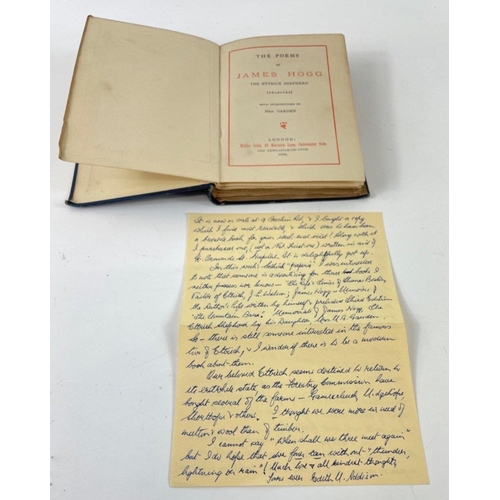 THE POEMS
OF
JAMES HOGG
THE ETTRICK SHEPHERD
(SELECTED)
WITH INTRODUCTION BY
Mrs. GARDEN
LONDON:
Walter Scott, 24 Warwick Lane, Paternoster Row,
AND NEWCASTLE-ON-TYNE.
It is now on sale at & I bought a copy
which I find most readable & which was to have been
a book for your and (along with it
I purchased one, (not a one) written in aid of
Ormonde St. Hospital. It is delightfully got up.
In this week's I was interested
to note that someone is advertising for three books I
neither possess nor know — "The Life & Times of Thomas Boston,
Pastor of Ettrick, by Watson; James Hogg, Memoirs of
the Author's Life written by himself & Third Edition
"the Mountain Bard." Memorials of James Hogg, the
Ettrick Shepherd by his Daughter, Mrs. M. G. Garden.
So — there is still someone interested in the famous
two of Ettrick, & I wonder if there is to be a modern
book about them.
Our beloved Ettrick seems destined to return to
its state as the Forestry Commission have
bought several of the farms — Gamescleuch, Midgehope,
Shorthope & others. I thought we were more in need of
mutton & wool than of timber.
I cannot say "When shall we three meet again"
but I do hope that we four can with-out "thunder,
lightning or rain"! Much love & all kindest thoughts,
Yours ever Edith M. Addison